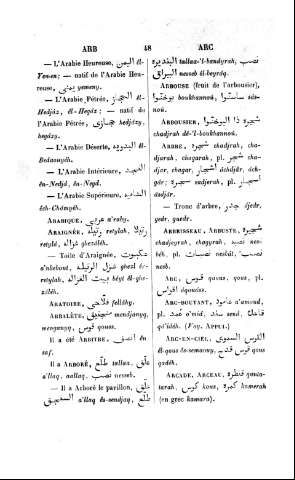 ARB 48 ARC
— L'Arabie Heureuse, اليمن êl-
Yemen; — natif de l'Arabie Heu-
reuse, يمني yemeny.
— L'Arabie Pétrée, الحجاز êl-
Hedjâz, êl-Hegâz; — natif de
l'Arabie Pétrée, حجازي hedjâzy,
hegâzy.
— L'Arabie Déserte, البدويه êl-
Bedaouyéh.
— L'Arabie Intérieure,
ên-Nedjd, ên-Negd.
— L'Arabie Supérieure,
êch-Châmyéh.
ARABIQUE, عربي a'raby.
ARAIGNÉE, رتيله retylah,
غزاله ghezâléh.
— Toile d'Araignée, عنكبوت
a'nkebout, غزل الرتيله ghezl êr-
retylah, بيت الغزاله béyt êl-gha-
zâléh.
ARATOIRE, فلاحي fellâhy.
ARBALÈTE, منجنيق mendjanyq,
menganyq, قوس qous.
Il a été ARBITRE, انصف ên-
saf.
Il a ARBORÉ, علّق tallaa,
a'llaq, نصب nesseb.
— Il a Arboré le pavillon, علّق
طلّع السنجق a'llaq ês-sendjaq,
البنديره tallaa'-l-bandyrah, نصب
البيراق nesseb êl-beyrâq.
ARBOUSE (fruit de l'arbousier),
بوخنّوا boukhannoû, ساسنوا sâs-
noû.
ARBOUSIER, شجرة ذا البوخنّوا
chadjrah dê-'l-boukhannoû.
ARBRE, شجره chadjrah, cha-
djarah, chagarah, pl. شجر cha-
djar, chagar, اشجار âchdjâr, âch-
gâr; سجره sadjerah, pl. اسجار
âsdjâr.
— Tronc d'arbre, جدر djedr,
gedr, guedr.
ARBRISSEAU, ARBUSTE, شجيره
chadjeyrah, chagyrah, نصب nes-
béh, pl. نصبات nesbât, نصب
nesb.
ARC, قوس qous, qaus, pl.
اقواس êqouâss.
ARC-BOUTANT, عامود a'amoud,
pl. عمد a'mid, سند send, قاعده
qâ'êdéh. (Voy. APPUI.)
ARC-EN-CIEL, القوس السموى
êl-qous ês-semaouy, قوس قدح qous
qadéh.
ARCADE, ARCEAU, قنطره qanta-
tarah, كوس kous, كمره kamerah
(en grec kamara).